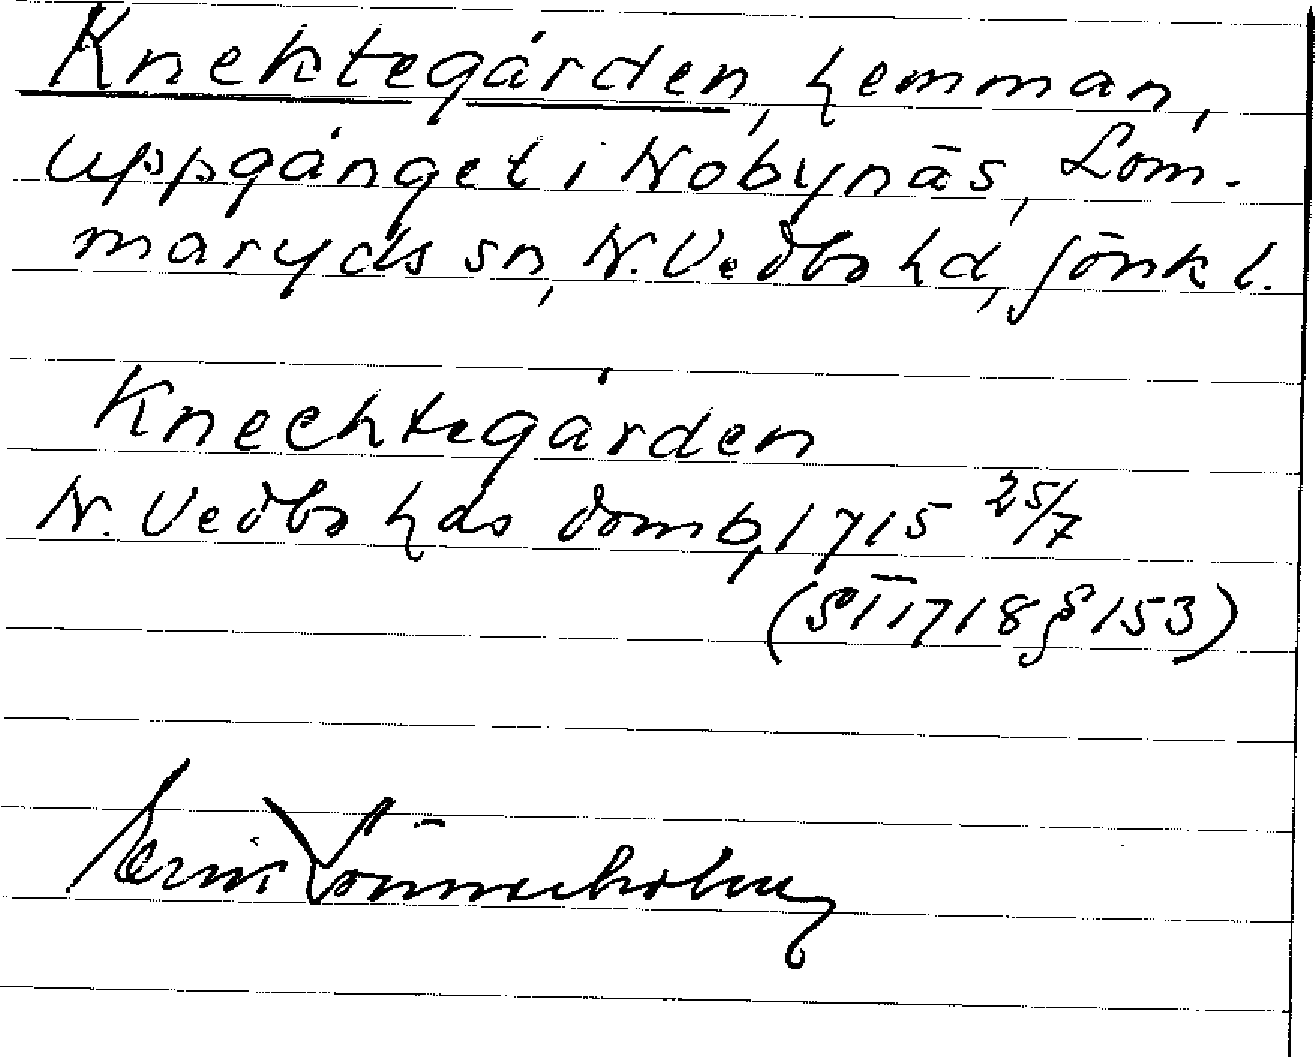 Knektegården, hemman,
uppgånget i Nobynäs, Lom-
maryds sn, N. Vedbo hd, Jönk l.
Knechtegården
N. Vedbo hds domb, 1715 25/7
(ST 1718 § 153)
Erik